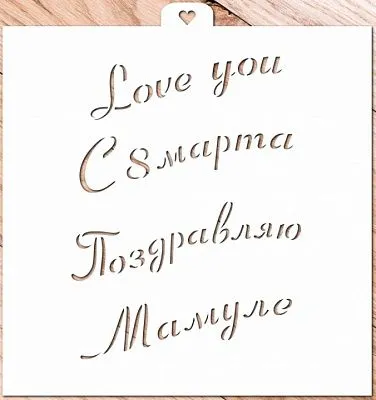 Love you
С 8 марта
Поздравляю
Мамуле